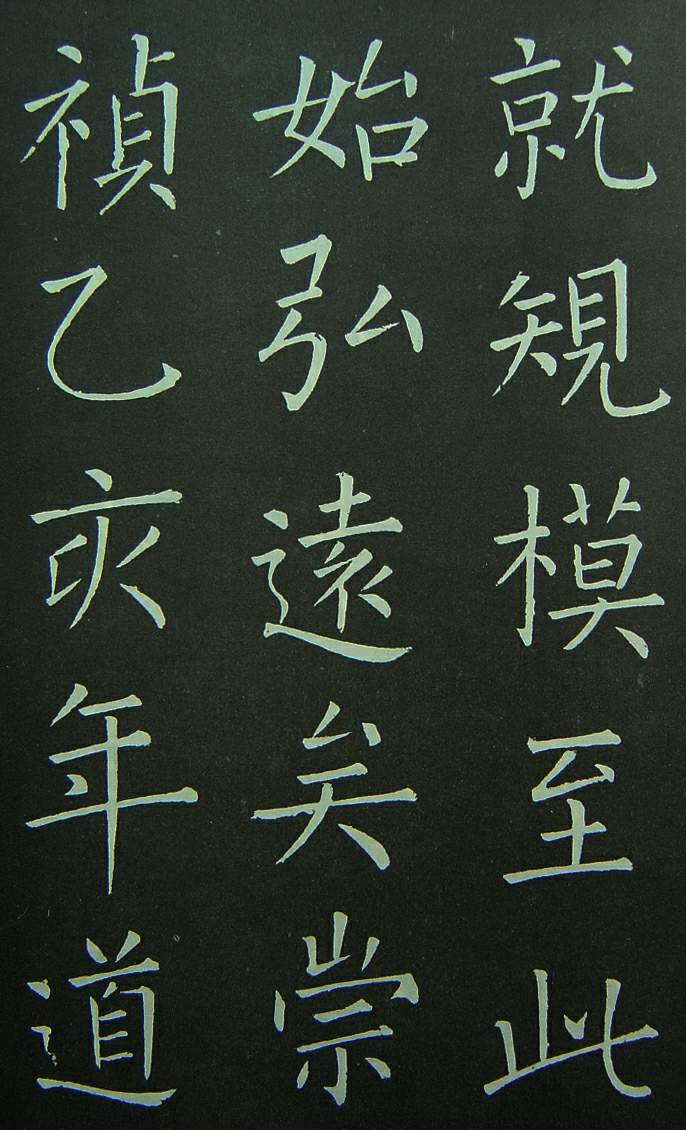 就規模至此
始弘遠矣崇
禎乙亥年道